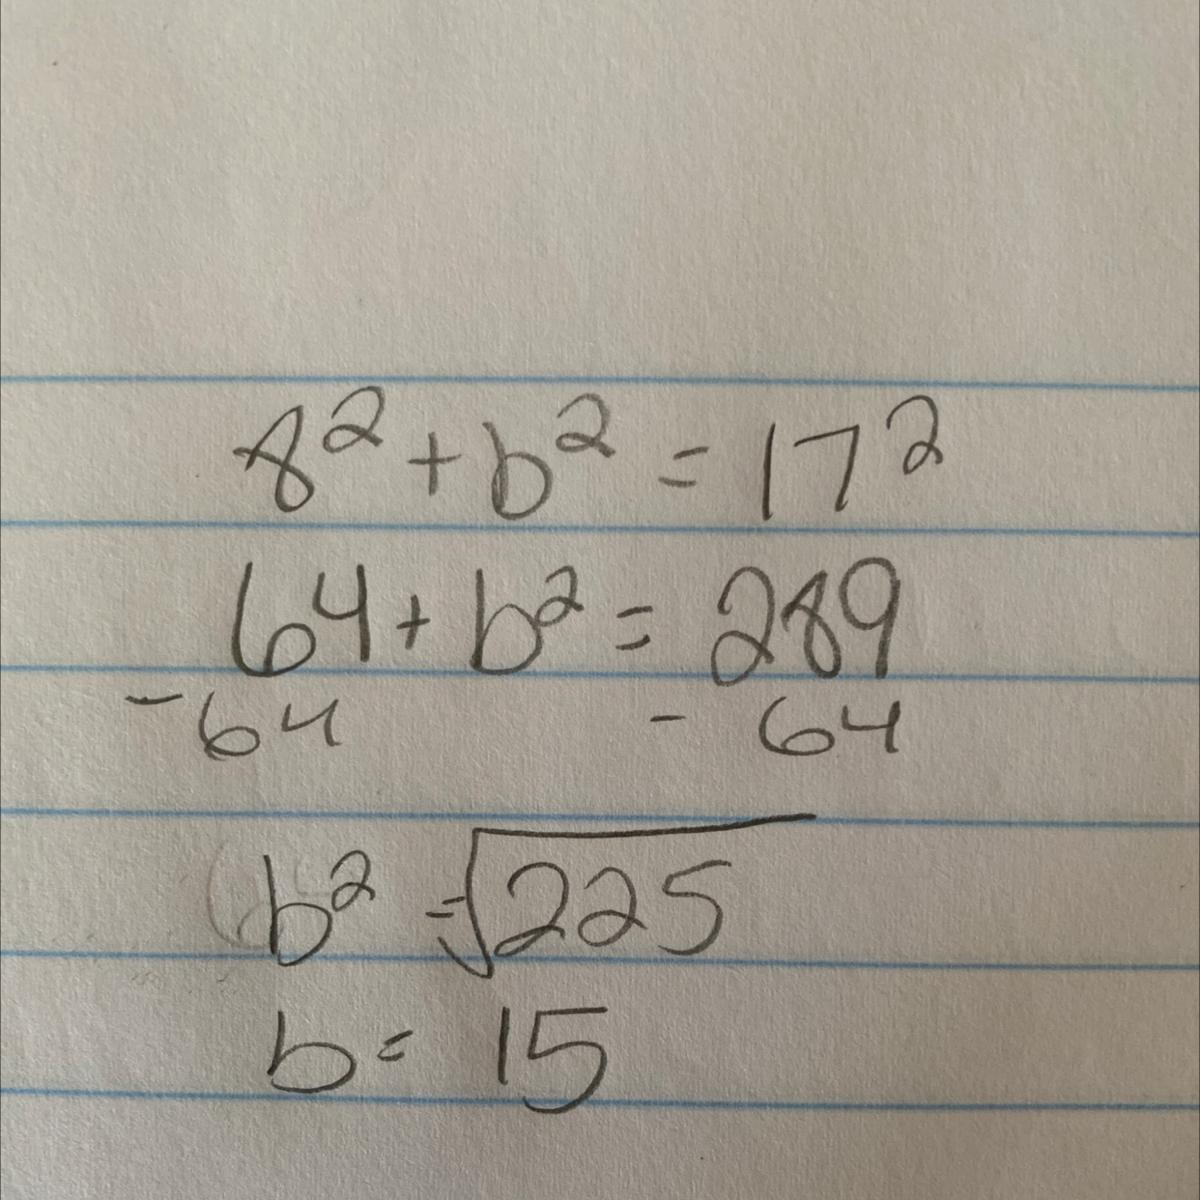 8² + b² = 17²
64 + b² = 289
-64 - 64
b² = √225
b = 15